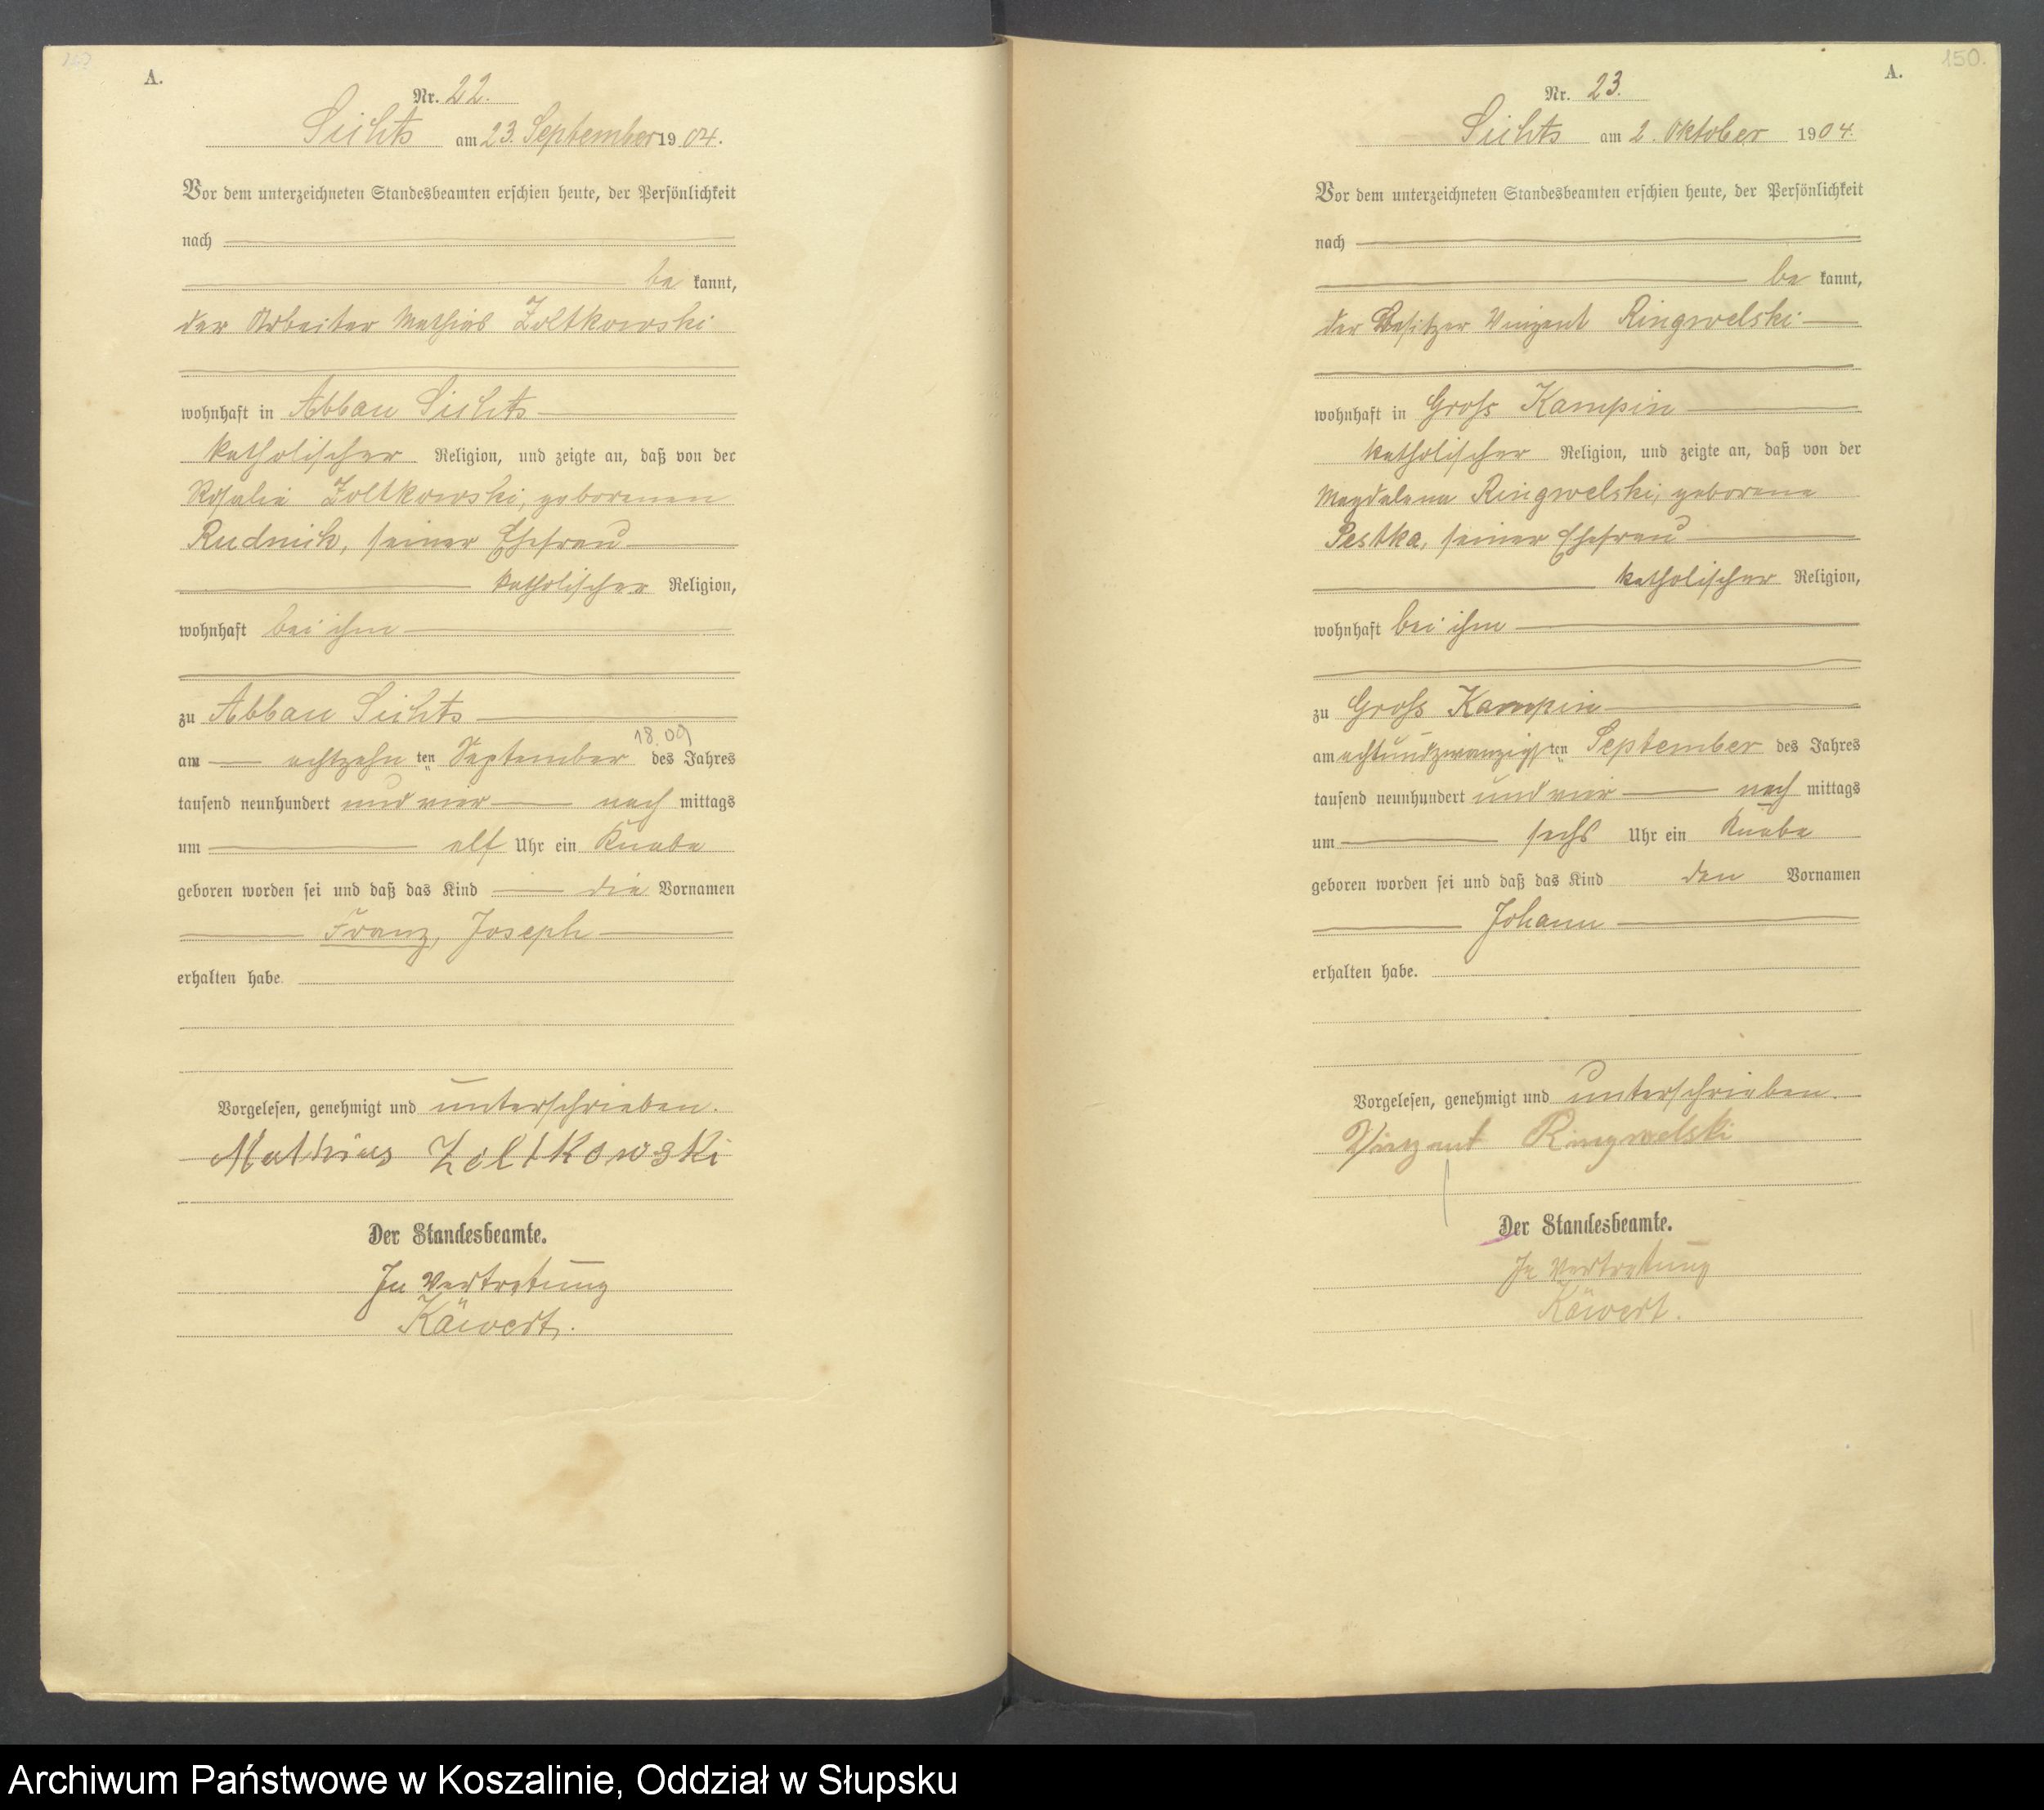 A.
Nr. 22.
Sichts am 23. September 1904.
Vor dem unterzeichneten Standesbeamten erschien heute, der Persönlichkeit
nach
be kannt,
der Arbeiter Mathias Zoltkowski
wohnhaft in Abbau Sichts
katholischer Religion, und zeigte an, daß von der
Rosalie Zoltkowski, geborenen
Rudnik, seiner Ehefrau
katholischer Religion,
wohnhaft bei ihm
zu Abbau Sichts
18.09
am achtzehn ten September des Jahres
tausend neunhundert und vier nach mittags
um elf Uhr ein Knabe
geboren worden sei und daß das Kind die Vornamen
Franz, Joseph
erhalten habe.
Vorgelesen, genehmigt und unterschrieben.
Mathias Zoltkowski
Der Standesbeamte.
In Vertretung
Käwert.
150.
A.
Nr. 23.
Sichts am 2. Oktober 1904.
Vor dem unterzeichneten Standesbeamten erschien heute, der Persönlichkeit
nach
be kannt,
der Besitzer Vinzent Ringwelski
wohnhaft in Groß Kampin
katholischer Religion, und zeigte an, daß von der
Magdalena Ringwelski, geborene
Pestka, seiner Ehefrau
katholischer Religion,
wohnhaft bei ihm
zu Groß Kampin
am achtundzwanzigsten September des Jahres
tausend neunhundert und vier nach mittags
um sechs Uhr ein Knabe
geboren worden sei und daß das Kind den Vornamen
Johann
erhalten habe.
Vorgelesen, genehmigt und unterschrieben.
Vinzent Ringwelski
Der Standesbeamte.
In Vertretung
Käwert.
Archiwum Państwowe w Koszalinie, Oddział w Słupsku